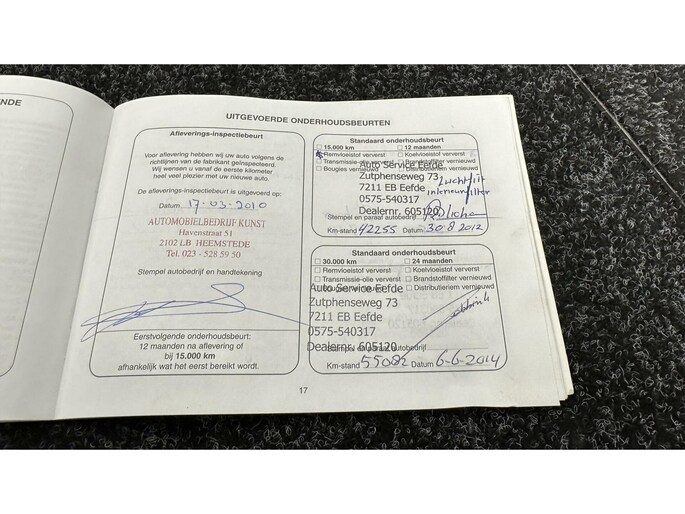 NDE
UITGEVOERDE ONDERHOUDSBEURTEN
Afleverings-inspectiebeurt
Voor aflevering hebben wij uw auto volgens de
richtlijnen van de fabrikant geïnspecteerd.
Wij wensen u vanaf de eerste kilometer
heel veel plezier met uw nieuwe auto.
De afleverings-inspectiebeurt is uitgevoerd op:
Datum 17-03-2010
AUTOMOBIELBEDRIJF KUNST
Havenstraat 51
2102 LB HEEMSTEDE
Tel. 023 - 528 59 50
Stempel autobedrijf en handtekening
Eerstvolgende onderhoudsbeurt:
12 maanden na aflevering of
bij 15.000 km
afhankelijk wat het eerst bereikt wordt.
Standaard onderhoudsbeurt
15.000 km 12 maanden
Remvloeistof ververst Koelvloeistof ververst
Transmissie-olie ververst Brandstoffilter vernieuwd
Bougies vernieuwd Distributieriem vernieuwd
Auto Service Eefde
Zutphenseweg 73
7211 EB Eefde
0575-540317
Dealernr. 605120
Luchtfilt
interieurfilter
Stempel en paraaf autobedrijf
Km-stand 42255 Datum 30-8 2012
Standaard onderhoudsbeurt
30.000 km 24 maanden
Remvloeistof ververst Koelvloeistof ververst
Transmissie-olie ververst Brandstoffilter vernieuwd
Bougies vernieuwd Distributieriem vernieuwd
Auto Service Eefde
Zutphenseweg 73
7211 EB Eefde
0575-540317
Dealernr. 605120
Stempel en paraaf autobedrijf
Km-stand 55082 Datum 6-6-2014
17